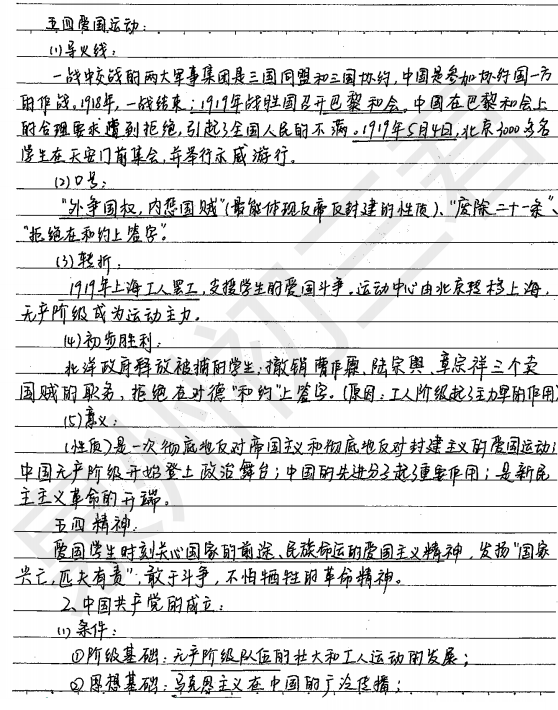 五四爱国运动:
(1)导火线:
一战中交战的两大军事集团是三国同盟和三国协约,中国是参加协约国一方
的作战,1918年,一战结束;1919年战胜国召开巴黎和会,中国在巴黎和会上
的合理要求遭到拒绝,引起了全国人民的不满。1919年5月4日,北京3000多名
学生在天安门前集会,并举行示威游行。
(2)口号:
“外争国权,内惩国贼”(最能体现反帝反封建的性质)、“废除二十一条”、
“拒绝在和约上签字”。
(3)转折:
1919年上海工人罢工,支援学生的爱国斗争。运动中心由北京转移上海,
无产阶级成为运动主力。
(4)初步胜利:
北洋政府释放被捕的学生;撤销曹作霖、陆宗舆、章宗祥三个卖
国贼的职务,拒绝在对德“和约”上签字。(原因:工人阶级起了主力军的作用)
(5)意义:
(性质)是一次彻底地反对帝国主义和彻底地反对封建主义的爱国运动;
中国无产阶级开始登上政治舞台;中国的先进分子起了重要作用;是新民
主主义革命的开端。
五四精神:
爱国学生时刻关心国家的前途、民族命运的爱国主义精神,发扬“国家
兴亡,匹夫有责”,敢于斗争,不怕牺牲的革命精神。
2、中国共产党的成立:
(1)条件:
①阶级基础:无产阶级队伍的壮大和工人运动的发展;
②思想基础:马克思主义在中国的广泛传播;